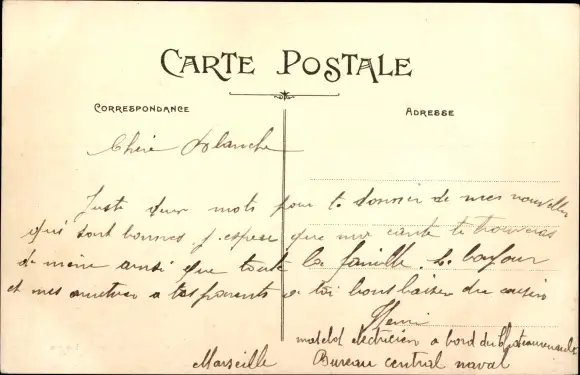 CARTE POSTALE
CORRESPONDANCE
ADRESSE
Chère Blanche
Juste deux mots pour te donner de mes nouvelles
qui sont bonnes j'espere que ma carte te trouveras
de même ainsi que toute la famille. le bonjour
et mes amities a tes parents a toi bons baiser du cousin
Henri
matelot electricien a bord du Chateaurenault
Marseille Bureau central naval